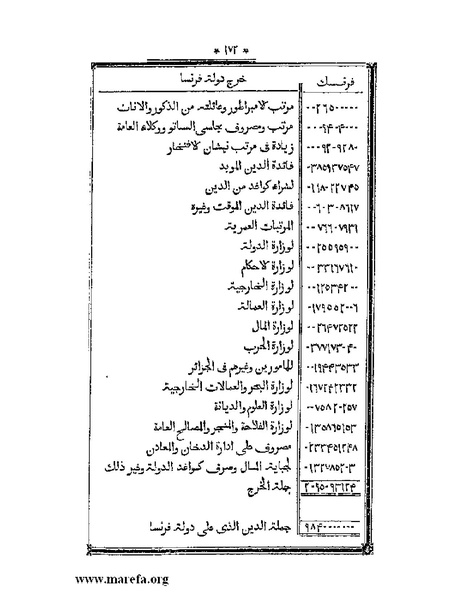 * ١٧٢ *
فرنسك خرج دولة فرنسا
٠٠٢٦٥٠٠٠٠٠ مرتب الامبراطور وعائلته من الذكور والاناث
٠٠٠٩٤٠٤٠٠٠ مرتب ومصروف مجلسى السناتو ووكلاء العامة
٠٠٠٩٢٠٩٢٨٠ زيادة فى مرتب نيشان الافتخار
٠٣٨٥٩٣٧٥٤٧ فائدة الدين الموبد
٠١١٨٠٢٢٧٤٥ لشراء كواغد من الدين
٠٠٦٠٣٠٨٦١٧ فائدة الدين الموقت وغيره
٠٠٧٦٦٠٧٩٣٦ المرتبات العمرية
٠٠٢٥٥٩٥٩٠٠ لوزارة الدولة
٠٠٣٣١٦٧٦١٠ لوزارة الاحكام
٠٠١٢٥٣٤٢٠٠ لوزارة الخارجية
٠١٧٩٥٥٢٠٠٦ لوزارة العمالة
٠٠٢٦٤٧٢٥٢٢ لوزارة المال
٠٣٧٧١٧٣٠٤٠ لوزارة الحرب
٠٠١٩٤٤٣٥٣٣ للمامورين وغيرهم فى الجزائر
٠١٦٧٢٤٢٣٣٢ لوزارة البحر والعمالات الخارجية
٠٠٧٥٨٢٠٢٥٧ لوزارة العلوم والديانة
٠١٣٥٨٦٥١٥٣ لوزارة الفلاحة والمتجر والمصالح العامة
٠٢٣٣٤٥١٢٤٨ مصروف على ادارة الدخان والمعادن
٠١٣٢٨٥٢٠٣ لجباية المال وصرف كواغد الدولة وغير ذلك
٢٠٩٥٠٩٣٦٢٤ جملة الخرج
٩٨٤٠٠٠٠٠٠٠ جملة الدين الذى على دولة فرنسا
www.marefa.org